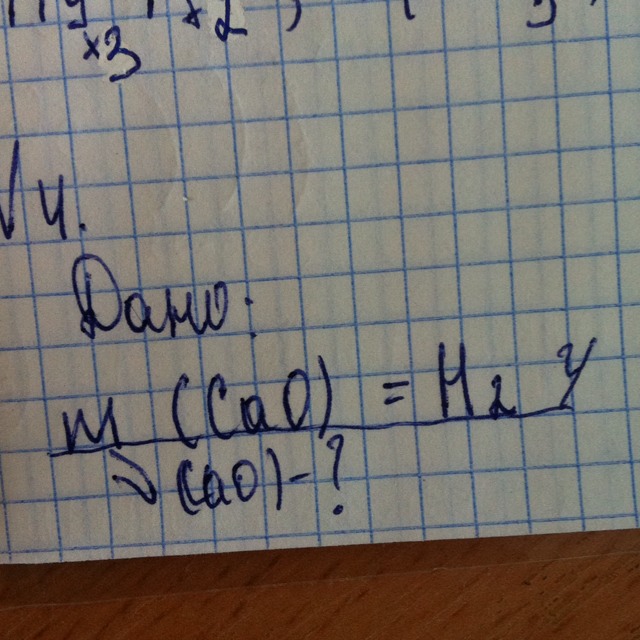 ×3 ×2
№4.
Дано:
m (CaO) = 112 г
ν(CaO)-?